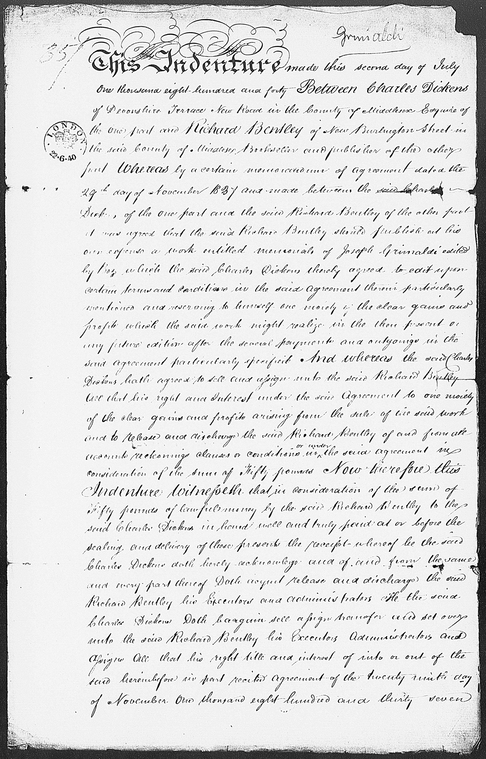 Grimaldi
35
This Indenture made this second day of July
One thousand eight hundred and forty Between Charles Dickens
of Devonshire Terrace New Road in the County of Middlesex Esquire of
the one part and Richard Bentley of New Burlington Street in
LONDON
22·6·40
the said County of Middlesex Bookseller and publisher of the other
part Whereas by a certain memorandum of Agreement dated the
29th day of November 1837 and made between the said Charles
Dickens, of the one part and the said Richard Bentley of the other part
it was agreed that the said Richard Bentley should publish at his
own expense a work entitled memorials of Joseph Grimaldi edited
by Boz which the said Charles Dickens thereby agreed to edit upon
certain terms and conditions in the said Agreement therein particularly
mentioned and reserving to himself one moiety of the clear gains and
profits which the said work might realize in the then present or
any future edition after the several payments and outgoings in the
said agreement particularly specified And whereas the said Charles
Dickens, hath agreed to sell and assign unto the said Richard Bentley
All that his right and Interest under the said Agreement to one moiety
of the clear gains and profits arising from the sale of the said work
and to release and discharge the said Richard Bentley of and from all
accounts reckonings clauses or conditions in or under the said agreement in
consideration of the sum of Fifty pounds Now therefore this
Indenture Witnesseth that in consideration of the sum of
Fifty pounds of lawful money by the said Richard Bentley to the
said Charles Dickens in hand well and truly paid at or before the
sealing and delivery of these presents the receipt whereof he the said
Charles Dickens doth hereby acknowledge and of and from the same
and every part thereof Doth acquit release and discharge the said
Richard Bentley his Executors and administrators He the said
Charles Dickens Doth bargain sell assign transfer and set over
unto the said Richard Bentley his Executors Administrators and
Assigns All that his right title and interest of into or out of the
said hereinbefore in part recited Agreement of the twenty ninth day
of November One thousand eight hundred and thirty seven